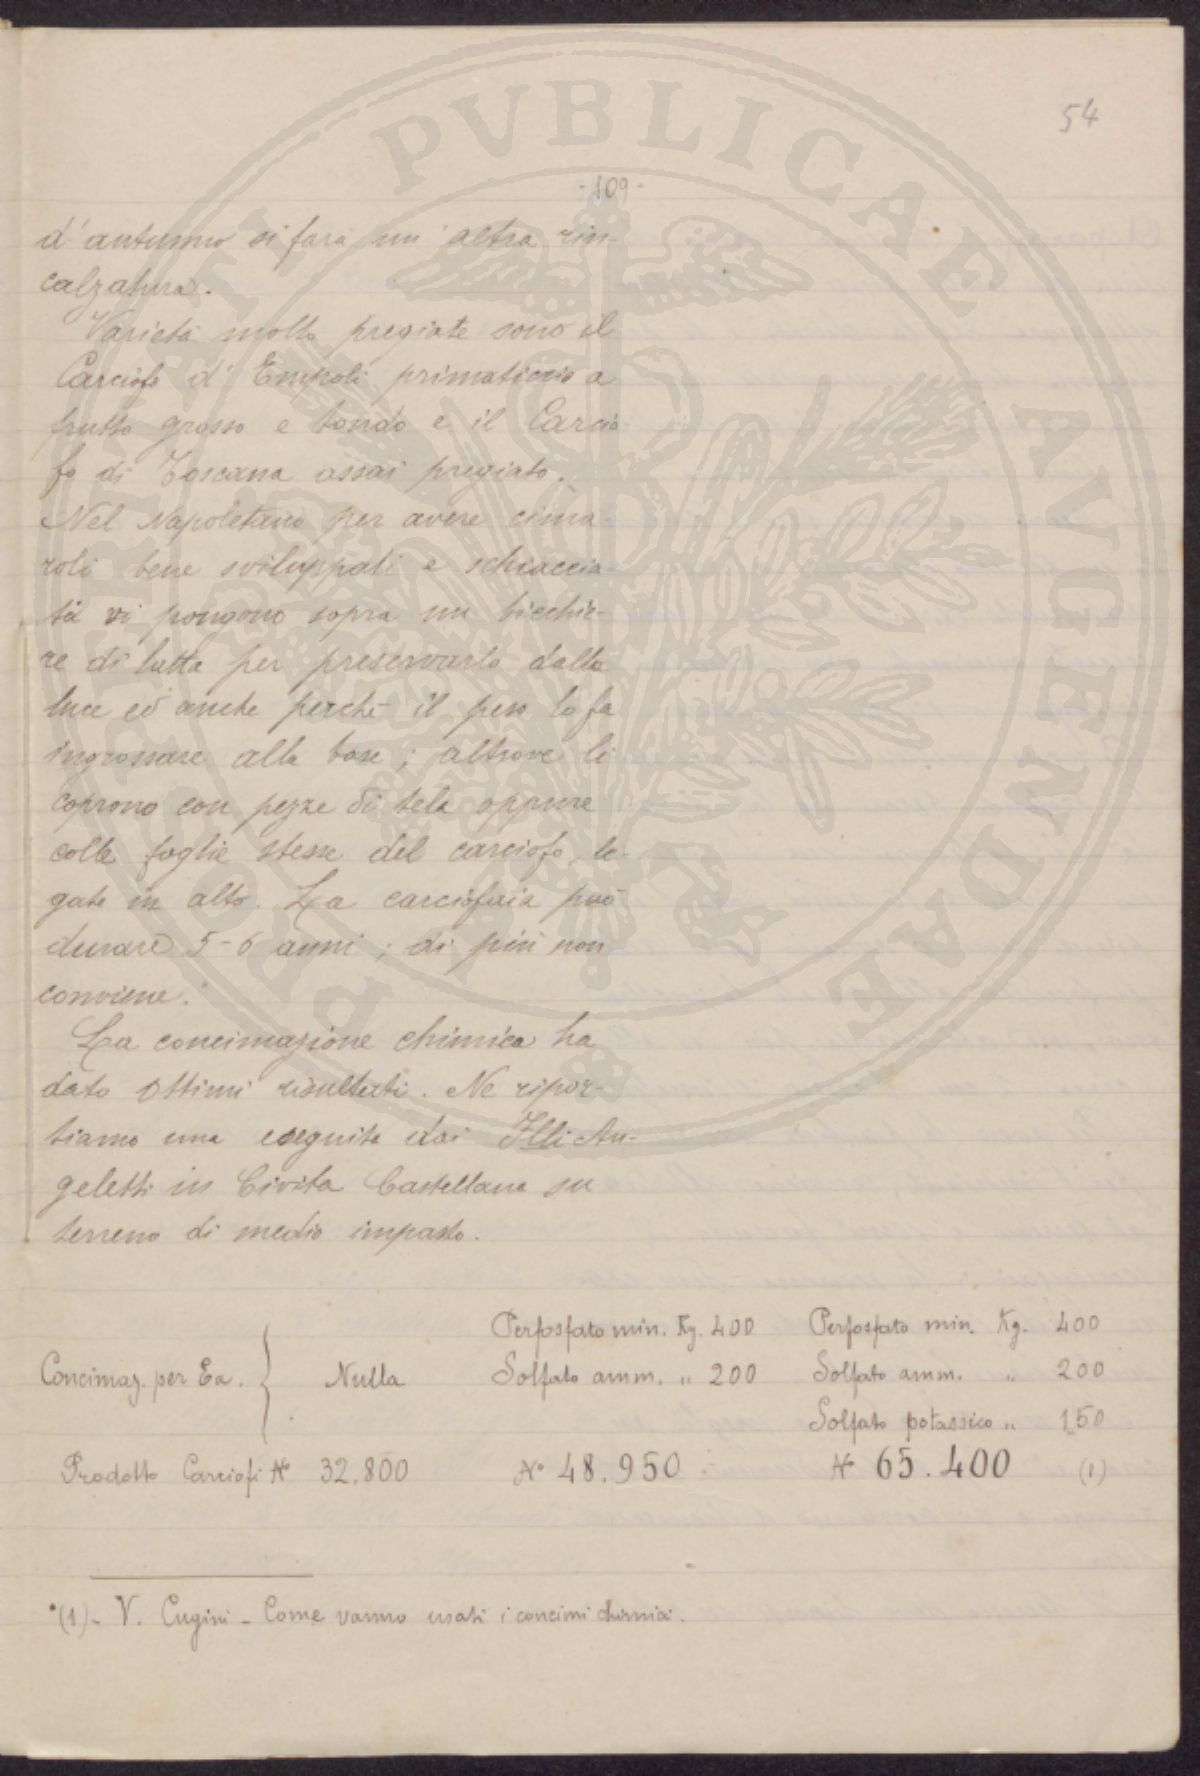 54
-109-
d'autunno si farà un'altra rin-
calzatura.
Varietà molto pregiate sono il
Carciofo d'Empoli primaticcio a
frutto grosso e tondo e il Carcio-
fo di Toscana assai pregiato.
Nel Napoletano per avere cima-
roli bene sviluppati e schiaccia-
ti vi pongono sopra un bicchie-
re di latta per preservarlo dalla
luce ed anche perchè il peso lo fa
ingrossare alla base; altrove li
coprono con pezze di tela oppure
colle foglie stesse del carciofo le-
gate in alto. La carciofaia può
durare 5-6 anni; di più non
conviene.
La concimazione chimica ha
dato ottimi risultati. Ne ripor-
tiamo una eseguita dai Flli An-
geletti in Civita Castellana su
terreno di medio impasto.
Perfosfato min. Kg. 400 Perfosfato min. Kg. 400
Concimaz. per Ea. { Nulla Solfato amm. " 200 Solfato amm. " 200
Solfato potassico " 150
Prodotto Carciofi N° 32.800 N° 48.950 N° 65.400 (1)
(1)- V. Cugini - Come vanno usati i concimi chimici.
PROSPERITATI PVBLICAE AVGENDAE